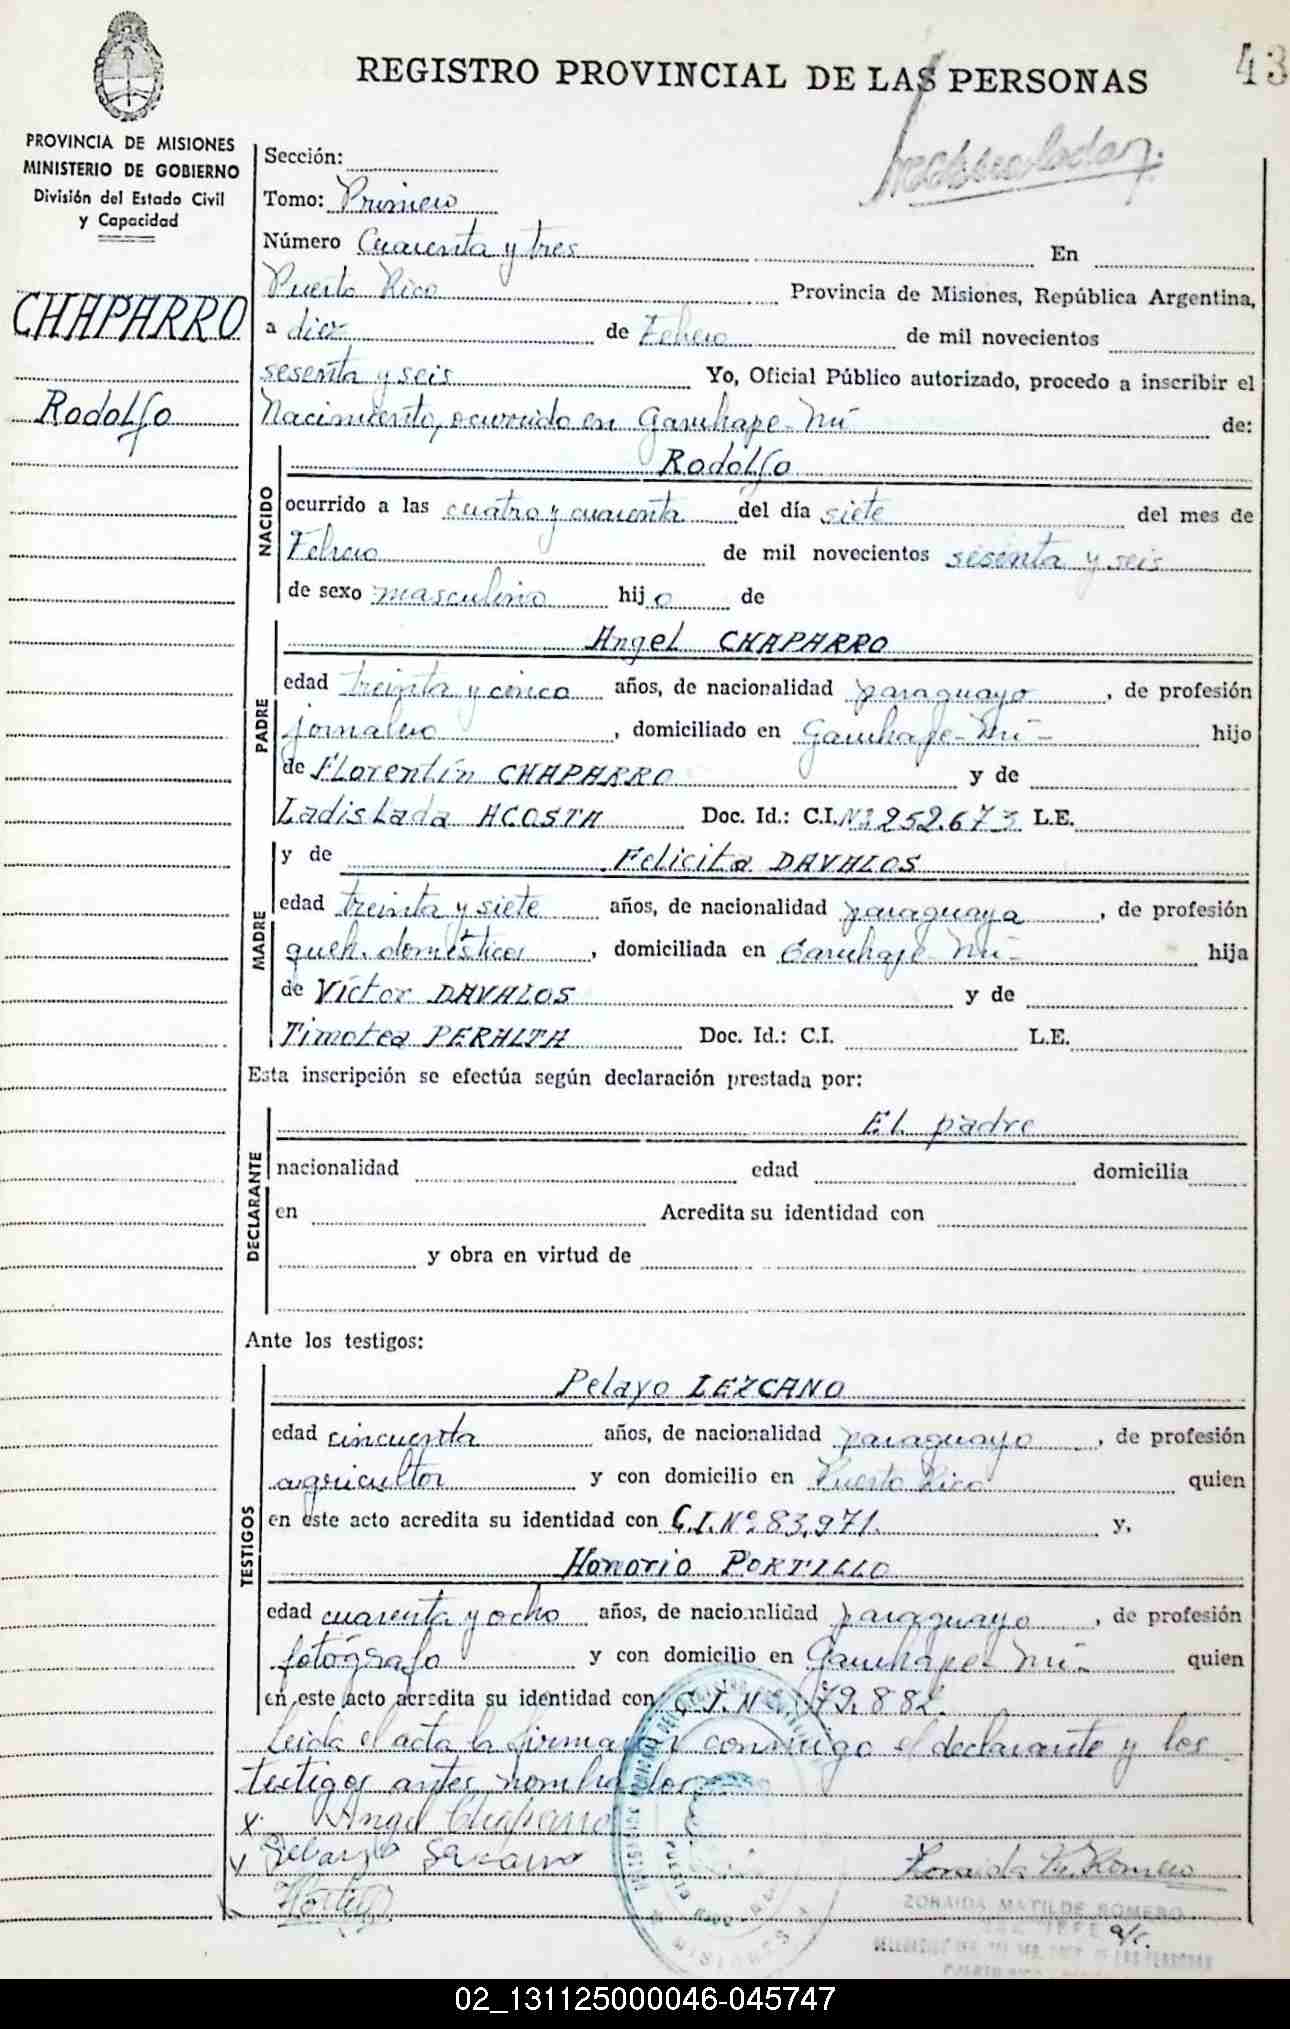 REGISTRO PROVINCIAL DE LAS PERSONAS
43
PROVINCIA DE MISIONES
MINISTERIO DE GOBIERNO
División del Estado Civil
y Capacidad
CHAPARRO
Rodolfo
Sección:
Tomo: Primero
Número Cuarenta y tres En
Puerto Rico Provincia de Misiones, República Argentina,
a diez de Febrero de mil novecientos
sesenta y seis Yo, Oficial Público autorizado, procedo a inscribir el
Nacimiento, ocurrido en Garuhape-Mí de:
NACIDO
Rodolfo
ocurrido a las cuatro y cuarenta del día siete del mes de
Febrero de mil novecientos sesenta y seis
de sexo masculino hijo de
PADRE
Angel CHAPARRO
edad treinta y cinco años, de nacionalidad paraguayo, de profesión
jornalero, domiciliado en Garuhape-Mí- hijo
de Florentín CHAPARRO y de
Ladislada ACOSTA Doc. Id.: C.I. Nº 252.673 L.E.
MADRE
y de Felicita DAVALOS
edad treinta y siete años, de nacionalidad paraguaya, de profesión
queh. domésticos, domiciliada en Garuhape-Mí- hija
de Víctor DAVALOS y de
Timotea PERALTA Doc. Id.: C.I. L.E.
Esta inscripción se efectúa según declaración prestada por:
DECLARANTE
El padre
nacionalidad edad domicilia
en Acredita su identidad con
y obra en virtud de
Ante los testigos:
TESTIGOS
Pelayo LEZCANO
edad cincuenta años, de nacionalidad paraguayo, de profesión
agricultor y con domicilio en Puerto Rico quien
en este acto acredita su identidad con C.I. Nº 83.971. y,
Honorio PORTILLO
edad cuarenta y ocho años, de nacionalidad paraguayo, de profesión
fotógrafo y con domicilio en Garuhape-Mí- quien
en este acto acredita su identidad con C.I. Nº 79.882.
Leida el acta la firman conmigo el declarante y los
testigos antes nombrados
x Angel Chaparro
Zoraida M. Romero
ZORAIDA MATILDE ROMERO
JEFE a/c.
DE LAS PERSONAS
PUERTO RICO
MISIONES
02_131125000046-045747